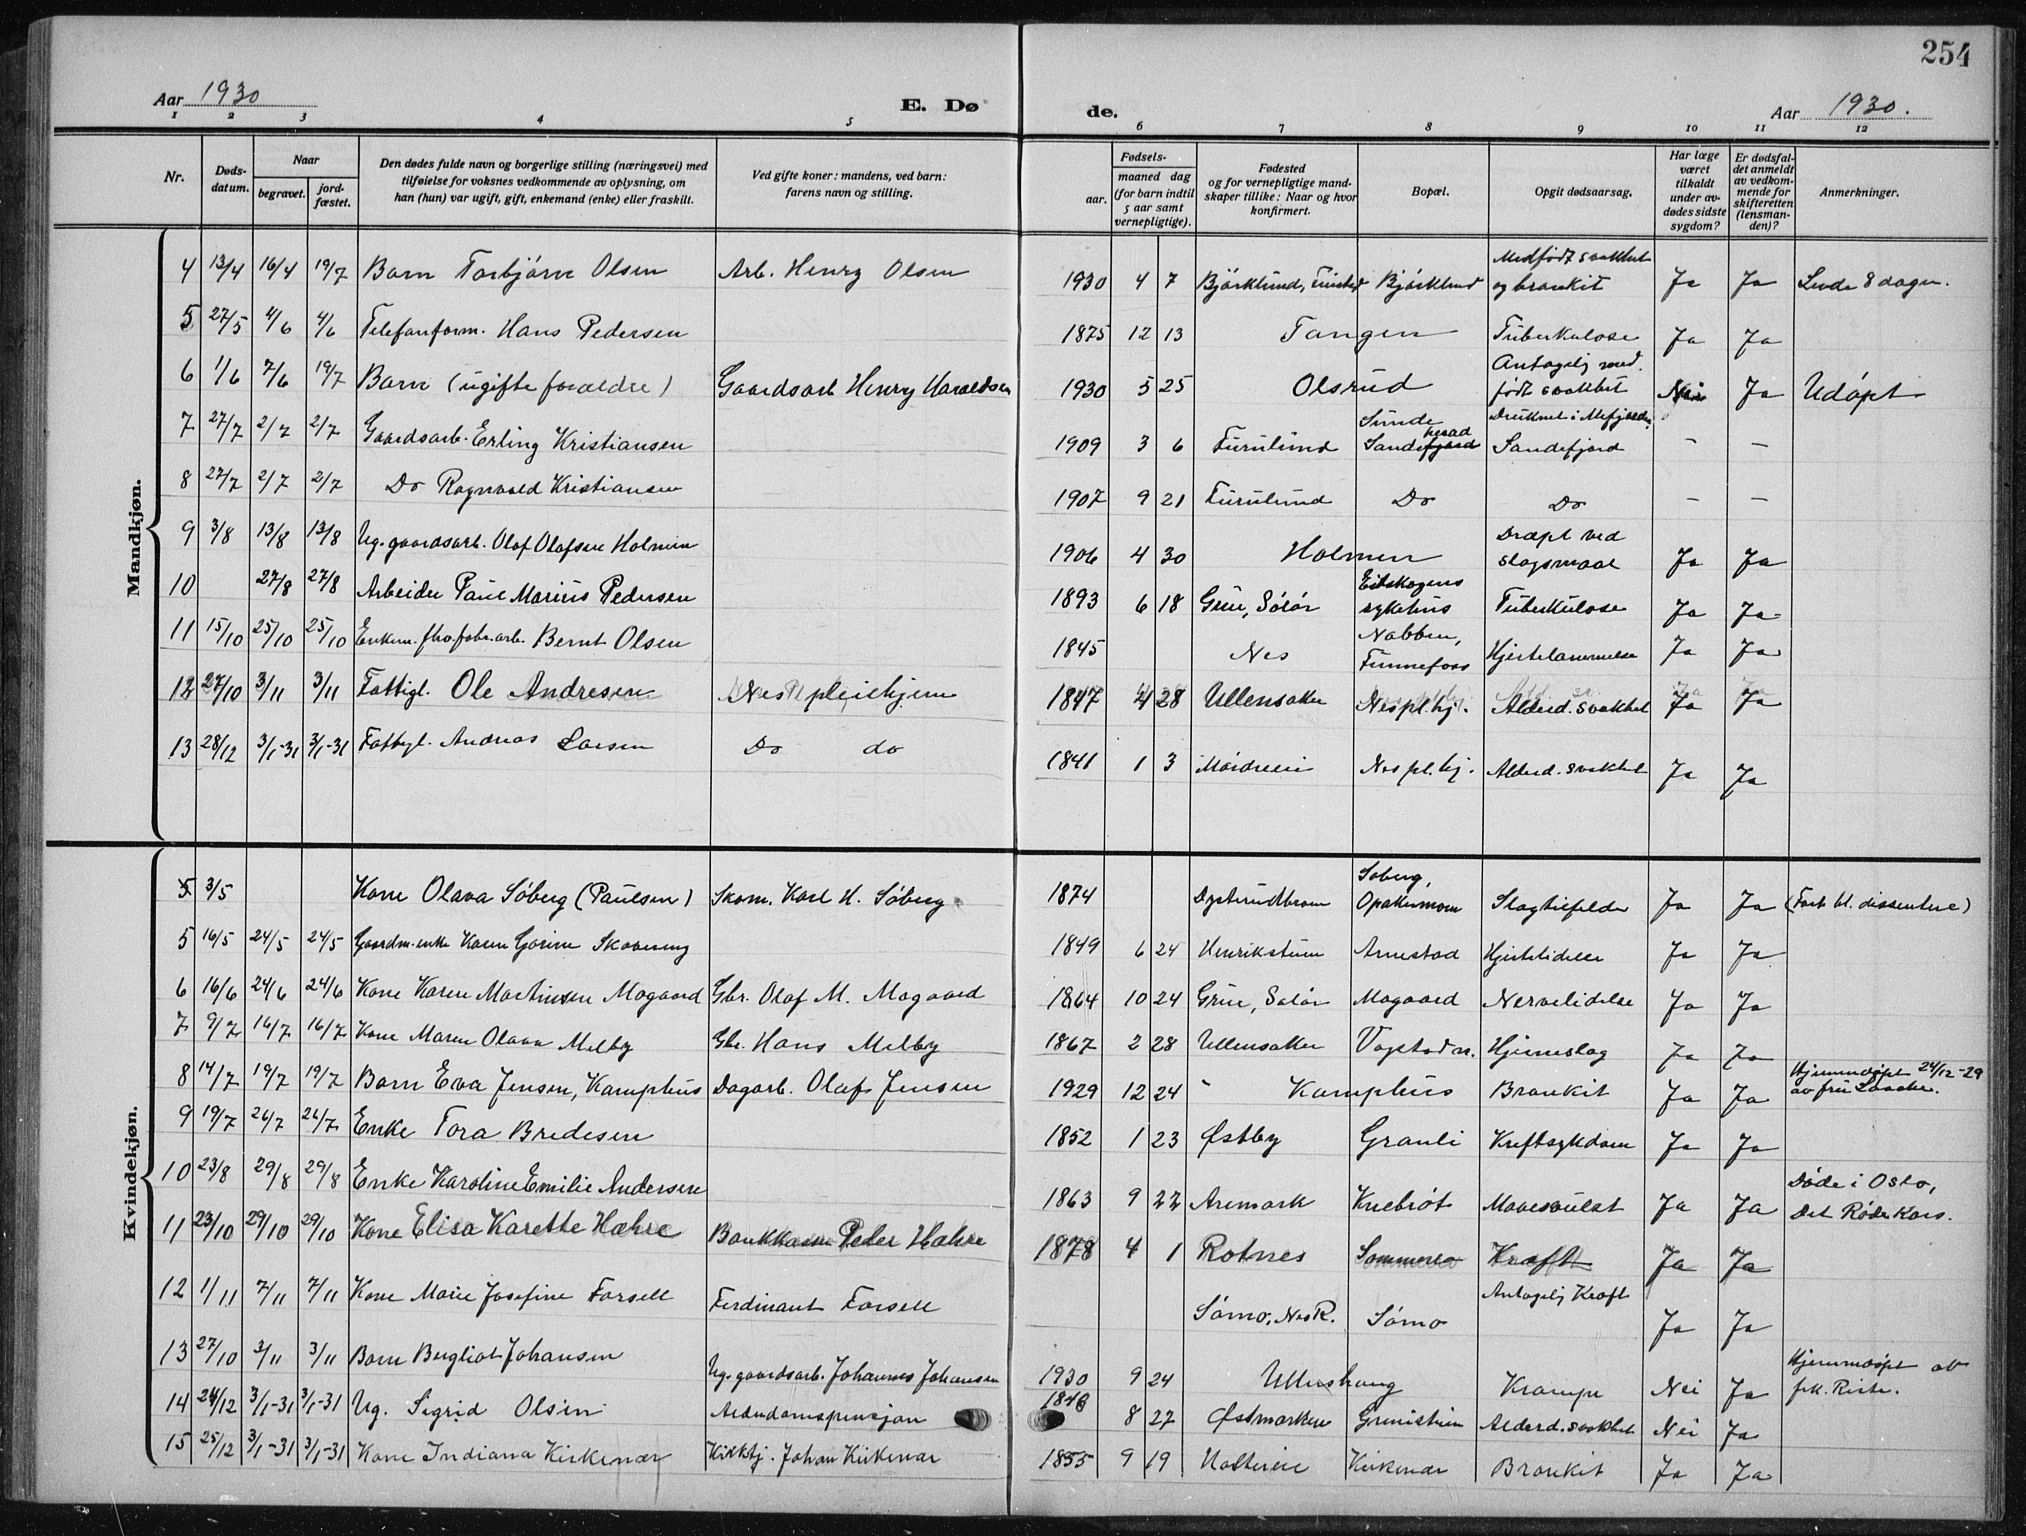 254
Aar 1930
E. Dø de.
Aar 1930.
1 2 3 4 5 6 7 8 9 10 11 12
Nr.
Døds-
datum.
Naar
begravet.
jord-
fæstet.
Den dødes fulde navn og borgerlige stilling (næringsvei) med
tilføielse for voksnes vedkommende av oplysning, om
han (hun) var ugift, gift, enkemand (enke) eller fraskilt.
Ved gifte koner: mandens, ved barn:
farens navn og stilling.
Fødsels-
aar.
maaned dag
(for barn indtil
5 aar samt
vernepligtige).
Fødested
og for vernepligtige mand-
skaper tillike: Naar og hvor
konfirmert.
Bopæl.
Opgit dødsaarsag.
Har læge
været
tilkaldt
under av-
dødes sidste
sygdom?
Er dødsfal-
det anmeldt
av vedkom-
mende for
skifteretten
(lensman-
den)?
Anmerkninger.
Mandkjøn.
4 13/4 16/4 19/7 Barn Torbjørn Olsen Arb. Henry Olsen 1930 4 7 Bjørklund, Bjørklund Medfødt svakhet og bronkit Ja Ja Levde 8 dager.
5 27/5 4/6 4/6 Telefonform. Hans Pedersen 1875 12 13 Tangen Tuberkulose Ja Ja
6 1/6 7/6 19/7 Barn (ugifte forældre) Gaardsarb. Henry Haraldsen 1930 5 25 Olsrud Antagelig med. født svakhet Nei Ja Udøpt
7 27/7 2/7 2/7 Gaardsarb. Erling Kristiansen 1909 3 6 Furulund Sunde Sandeherad Druknet i Mefjorden Sandefjord – –
8 27/7 2/7 2/7 Do Ragnvald Kristiansen 1907 9 21 Furulund Do Do – –
9 3/8 13/8 13/8 Ug. gaardsarb. Olaf Olafsen Holmen 1906 4 30 Holmen Dræpt ved slagsmaal Ja Ja
10 27/8 27/8 Arbeider Paul Marius Pedersen 1893 6 18 Grue, Solør Eidskogens sykehus Tuberkulose Ja Ja
11 15/10 25/10 25/10 Enkem. fho. fabr. arb. Bernt Olsen 1845 Nes Nabben, Funnefoss Hjertelammelse Ja Ja
12 27/10 3/11 3/11 Fattigl. Ole Andresen Nes pleiehjem 1847 4 28 Ullensaker Nes pl. hj. Alderd. svakhet Ja Ja
13 28/12 3/1-31 3/1-31 Fattigl. Andreas Larsen Do do 1841 1 3 Nes pl. hj. Alderd. svakhet Ja Ja
Kvindekjøn.
5 3/5 Kone Olava Søberg (Paulsen) Skom. Karl H. Søberg 1874 Dysterudbraan Søberg, Opakermoen Slagtilfelder Ja Ja (Fort bl. dissentere)
5 16/5 24/5 24/5 Gaardm. enke Karen Gorine Skovereng 1849 6 24 Henrikstuen Arnestad Hjertelidelse Ja Ja
6 16/6 24/6 24/6 Kone Karen Martinsen Mogaard Gbr. Olaf M. Mogaard 1864 10 24 Grue, Solør Mogaard Nervelidelse Ja Ja
7 9/7 16/7 16/7 Kone Maren Olava Melby Gbr. Hans Melby 1867 2 28 Ullensaker Vogstad n. Hjerneslag Ja Ja
8 14/7 19/7 19/7 Barn Eva Jensen, Kamphus Dagarb. Olaf Jensen 1929 12 24 Kamphus Bronkit Ja Ja Hjemmedøpt 24/12-29 av fru Laache.
9 19/7 26/7 26/7 Enke Tora Bredesen 1852 1 23 Østby Granli Kreftsykdom Ja Ja
10 23/8 29/8 29/8 Enke Karoline Emilie Andersen 1863 9 22 Aremark Knebrøt Mavesvulst Ja Ja Døde i Oslo, Det Røde Kors.
11 23/10 29/10 29/10 Kone Elisa Karette Hæhre Bankkasser Peder Hæhre 1878 4 1 Rotnes Sommerro Kræft Ja Ja
12 1/11 7/11 7/11 Kone Marie Josefine Forsell Ferdinant Forsell Sørmo, Nes R. Sørmo Antagelig Kræft Ja Ja
13 27/10 3/11 3/11 Barn Bergliot Johansen Ug. gaardsarb. Johannes Johansen 1930 9 24 Ullershaug Krampe Nei Ja Hjemmedøpt av frk. Riste.
14 24/12 3/1-31 3/1-31 Ug. Sigrid Olsen Alderdomspensjon 1846 8 27 Østmarken Grenistuen Alderd. svakhet Nei Ja
15 25/12 3/1-31 3/1-31 Kone Indiana Kirkenær Kirketj. Johan Kirkenær 1855 9 19 Kirkenær Bronkit Ja Ja